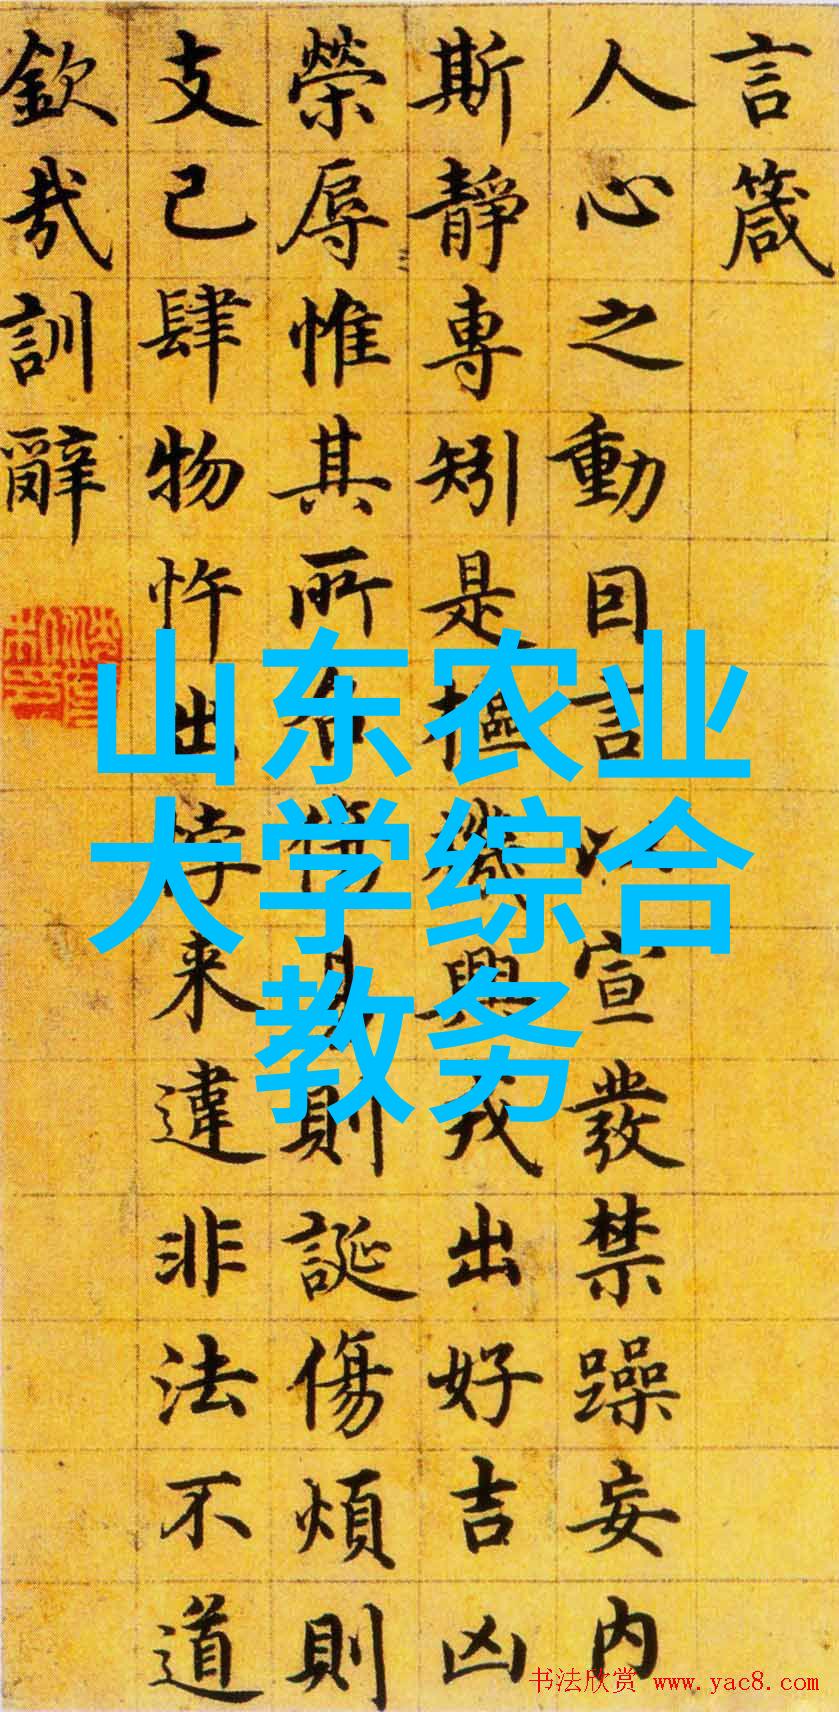 言箴
人心之動因言以宣發禁躁妄内
斯靜專矧是樞機興戎出好吉凶
榮辱惟其所召傷易則誕傷煩則
支己肆物忤出悖来違非法不道
欽哉訓辭
山东农业
大学综合
教务
书法欣赏 www.yac8.com